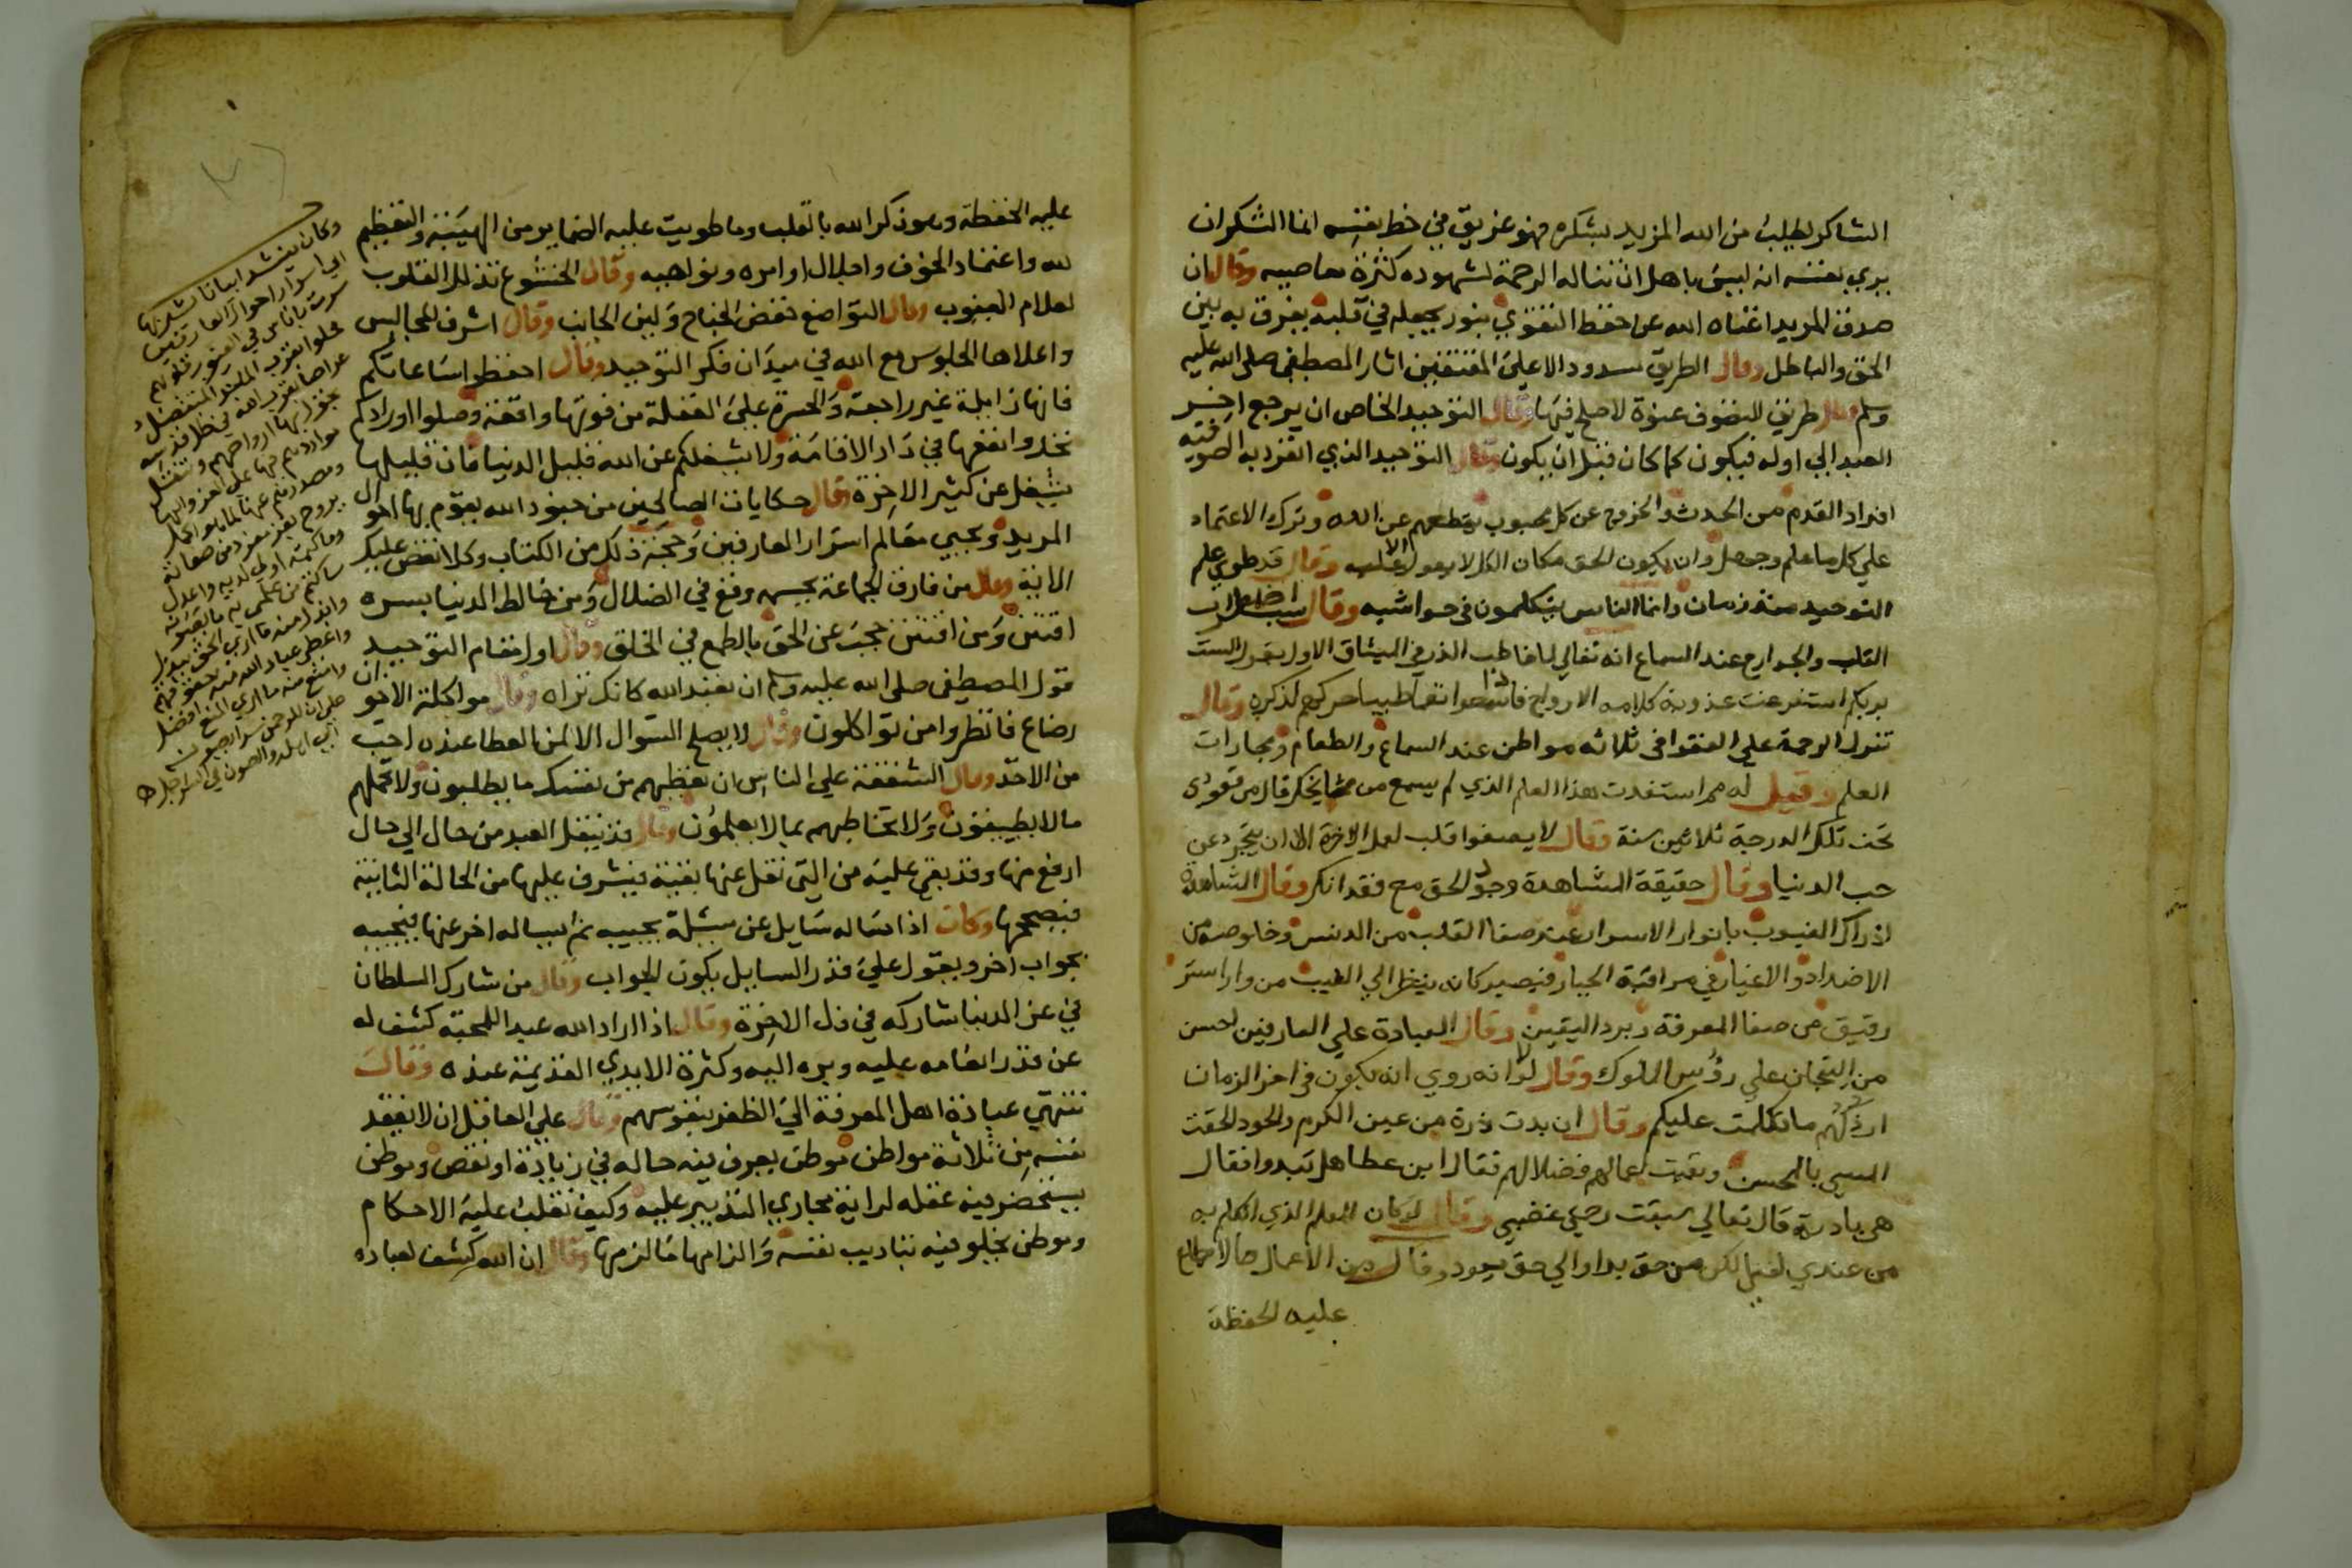 الشاكر لطلب من الله المزيد بشكره فهو غريق في حظ نفسه انما الشكر ان
يري نفسه انه ليس باهل ان تناله الرحمة لشهوده كثرة معاصيه وقال ان
صدق المريد اغناه الله عن حفظ النقول بنور يجعله في قلبه يفرق به بين
الحق والباطل وقال الطريق مسدود الا علي المقتفين اثار المصطفي صلي الله عليه
وسلم وقال طريق التصوف عنوة لا صلح فيها وقال التوحيد الخاص ان يرجع اخر
العبد الي اوله فيكون كما كان قبل ان يكون وقال التوحيد الذي انفرد به الصوفية
افراد القدم من الحدث والخروج عن كل محبوب يقطعهم عن الله وترك الاعتماد
علي كل ما علم وجهل وان يكون الحق مكان الكل لا يعول الا عليه وقال قد طوي علم
التوحيد منذ زمان وانما الناس يتكلمون في حواشيه وقال سبب اضطراب
القلب والجوارح عند السماع انه تعالي لما خاطب الذر في الميثاق الاول بقوله الست
بربكم استفرغت عذوبة كلامه الارواح فاذا سمعوا نغما طيبا حركهم لذكره وقال
تنزل الرحمة علي الفقرا في ثلاثه مواطن عند السماع والطعام ومجارات
العلم وقيل له مم استفدت هذا العلم الذي لم يسمع من مشايخك قال من قعودي
تحت تلك الدرجة ثلاثين سنة وقال لا يصفوا قلب لعمل الاخرة الا ان يتجرد عن
حب الدنيا وقال حقيقة المشاهدة وجود الحق مع فقدانك وقال المشاهدة
ادراك الغيوب بانوار الاسرار عند صفا القلب من الدنس وخلوصه من
الاضداد والاغيار في مراقبة الجبار فيصير كانه ينظر الي الغيب من ورا ستر
رقيق من صفا المعرفة وبرد اليقين وقال العبادة علي العارفين احسن
من التيجان علي رؤس الملوك وقال لولا انه روي انه يكون في اخر الزمان
ارذلهم ما تكلمت عليكم وقال ان بدت ذرة من عين الكرم والجود الحقت
المسي بالمحسن وبقيت اعمالهم فضلا لهم فقال ابن عطا هل تبدوا فقال
هي بادية قال تعالي سبقت رحمتي غضبي وقال لو كان العلم الذي اتكلم به
من عندي لفني لكن من حق بدا والي حق يعود وقال من الاعمال ما لا تطلع
عليه الحفظة
عليه الحفظة وهو ذكر الله بالقلب وما طويت عليه الضماير من الهيبة والتعظيم
لله واعتقاد الخوف واجلال اوامره ونواهيه وقال الخشوع تذلل القلوب
لعلام الغيوب وقال التواضع خفض الجناح ولين الجانب وقال اشرف المجالس
واعلاها الجلوس مع الله في ميدان فكر التوحيد وقال احفظوا ساعاتكم
فانها زايلة غير راجعة والحسرة علي الغفلة من فوتها واقعة وصلوا اورادكم
تجدوا نفعها في دار الاقامة ولا يشغلكم عن الله قليل الدنيا فان قليلها
يشغل عن كثير الاخرة وقال حكايات الصالحين من جنود الله يقوم بها احوال
المريد ويحيي معالم اسرار العارفين وحجة ذلك من الكتاب وكلا نقص عليك
الاية وقال من فارق الجماعة بجسمه وقع في الضلال ومن خالط الدنيا بسره
افتتن ومن افتتن حجب عن الحق بالطمع في الخلق وقال اول مقام التوحيد
قول المصطفي صلي الله عليه وسلم ان تعبد الله كانك تراه وقال مواكلة الاخوان
رضاع فانظروا من تواكلون وقال لا يصلح السوال الا لمن العطا عنده احب
من الاخذ وقال الشفقة علي الناس ان تعطيهم من نفسك ما يطلبون ولا تحملهم
ما لا يطيقون ولا تخاطبهم بما لا يعلمون وقال قد ينقل العبد من حال الي حال
ارفع منها وقد بقي عليه من التي نقل عنها بقية فيشرف عليها من الحالة الثانية
فيصححها وكان اذا ساله سايل عن مسئلة يجيبه ثم يساله اخر عنها فيجيبه
بجواب اخر ويقول علي قدر السايل يكون الجواب وقال من شارك السلطان
في عز الدنيا شاركه في ذل الاخرة وقال اذا اراد الله عبدا للمحبة كشف له
عن قدر انعامه عليه وبره اليه وكثرة الايدي القديمة عنده وقال
تنتهي عبادة اهل المعرفة الي الظفر بنفوسهم وقال علي العاقل ان لا يفقد
نفسه من ثلاثة مواطن موطن يعرف فيه حاله في زيادة او نقص وموطن
يستحضر فيه عقله لراية مجاري التدبير عليه وكيف تقلب عليه الاحكام
وموطن يخلو فيه بتاديب نفسه والزامها ما لزمها وقال ان الله كشف لعباده